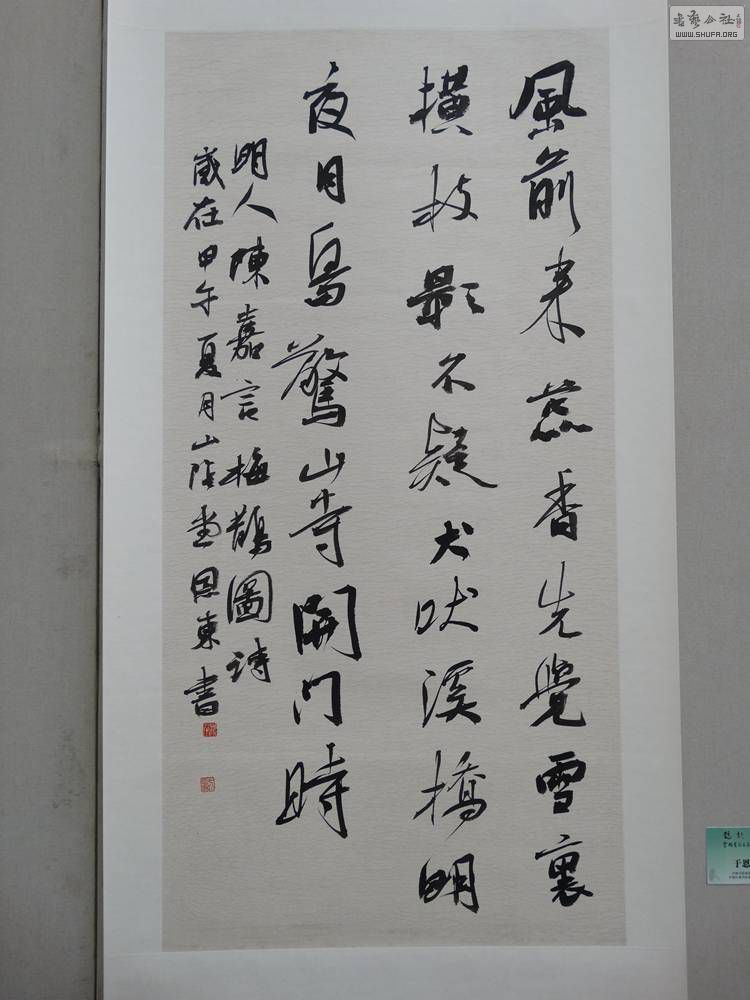 風前未蕊香先覺雪裏
橫枝影不疑犬吠溪橋明
夜月鳥驚山寺開門時
明人陳嘉言梅鵲圖詩
歲在甲午夏月山陰恩東書
書藝公社
WWW.SHUFA.ORG
于恩